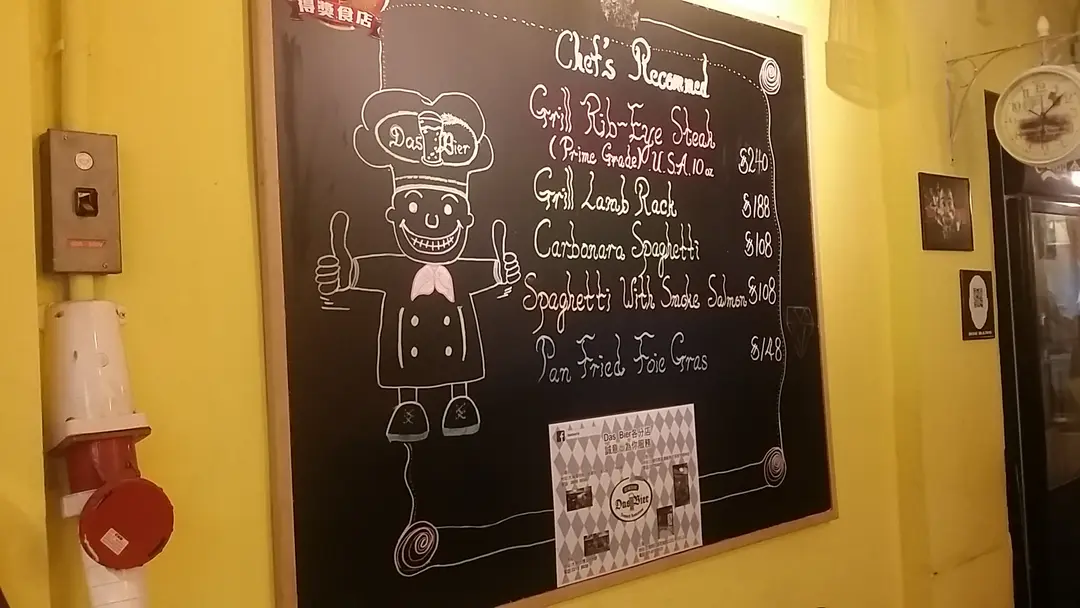 得獎食店
Chef's Recommed
Das Bier
Grill Rib-Eye Steak
(Prime Grade) U.S.A. 10 oz $240
Grill Lamb Rack $188
Carbonara Spaghetti $108
Spaghetti With Smoke Salmon $108
Pan Fried Foie Gras $148
Das Bier各分店
誠意為你服務
Das Bier